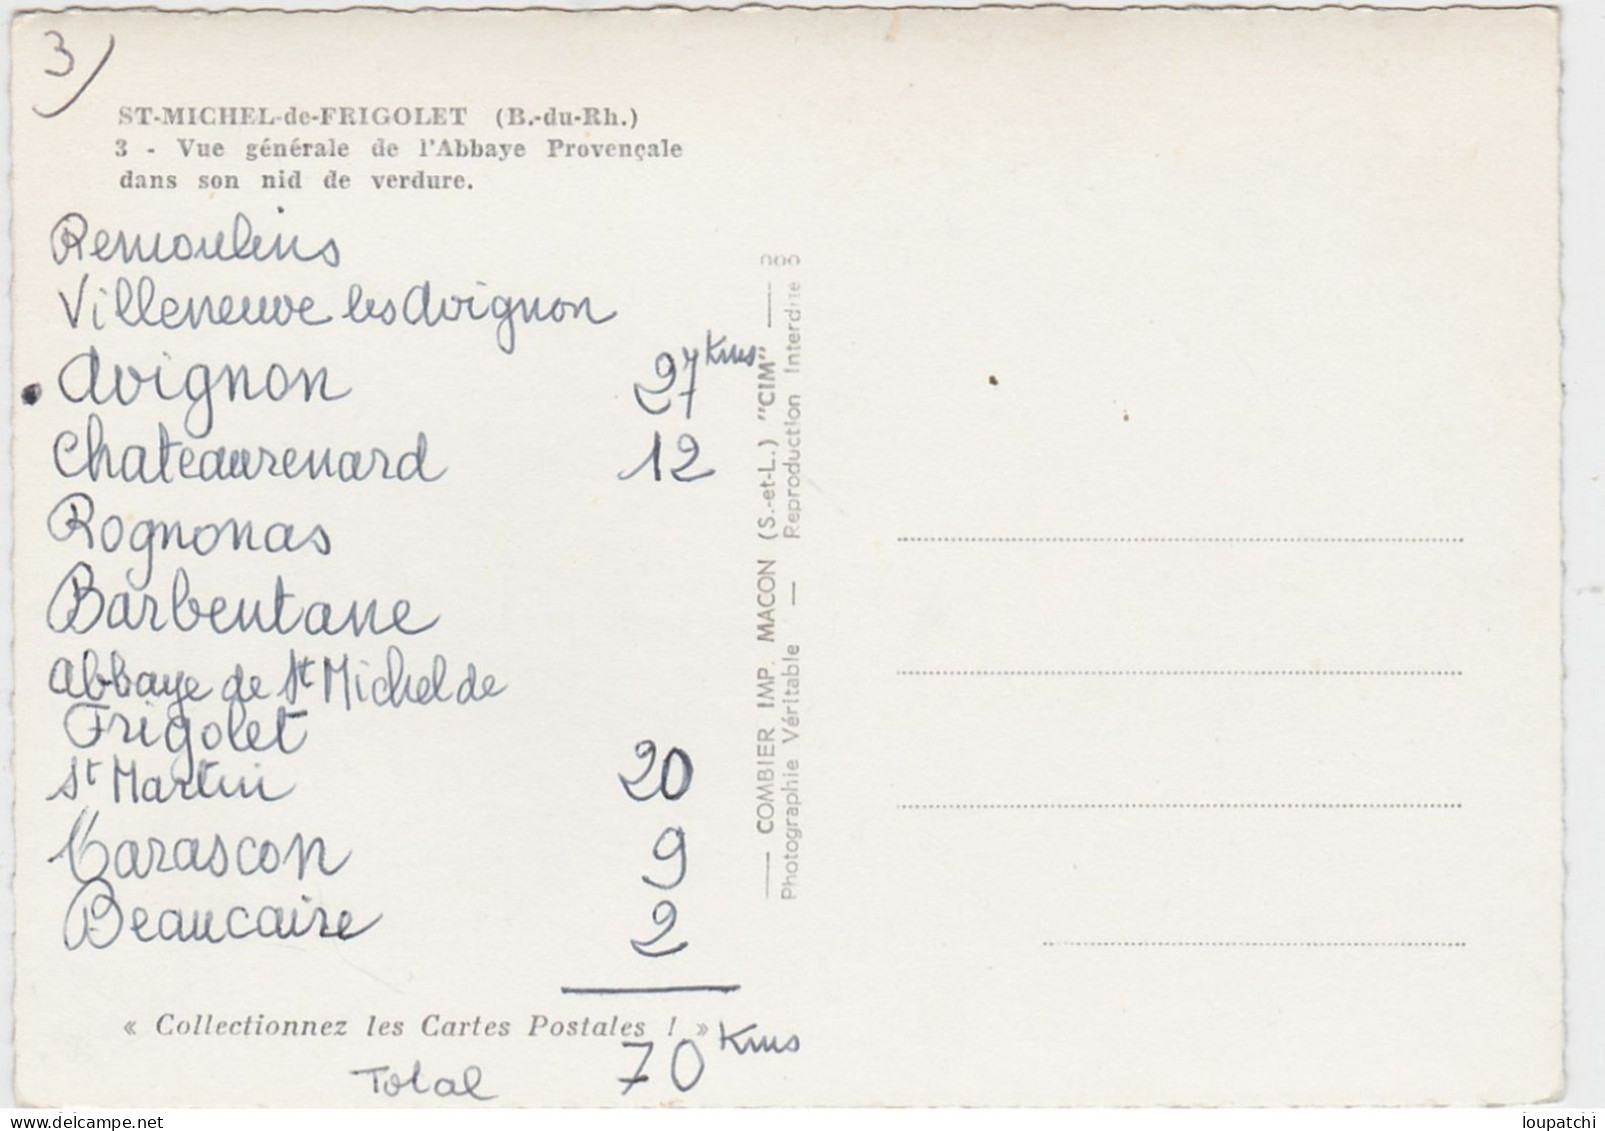 3)
ST-MICHEL-de-FRIGOLET (B.-du-Rh.)
3 - Vue générale de l'Abbaye Provençale
dans son nid de verdure.
Remoulins
Villeneuve les Avignon
Avignon 27 Kms
Chateaurenard 12
Rognonas
Barbentane
Abbaye de St Michel de
Frigolet
St Martin 20
Tarascon 9
Beaucaire 2
« Collectionnez les Cartes Postales ! »
Total 70 Kms
COMBIER IMP. MACON (S.-et-L.) "CIM"
Photographie Véritable — Reproduction Interdite
www.delcampe.net
loupatchi